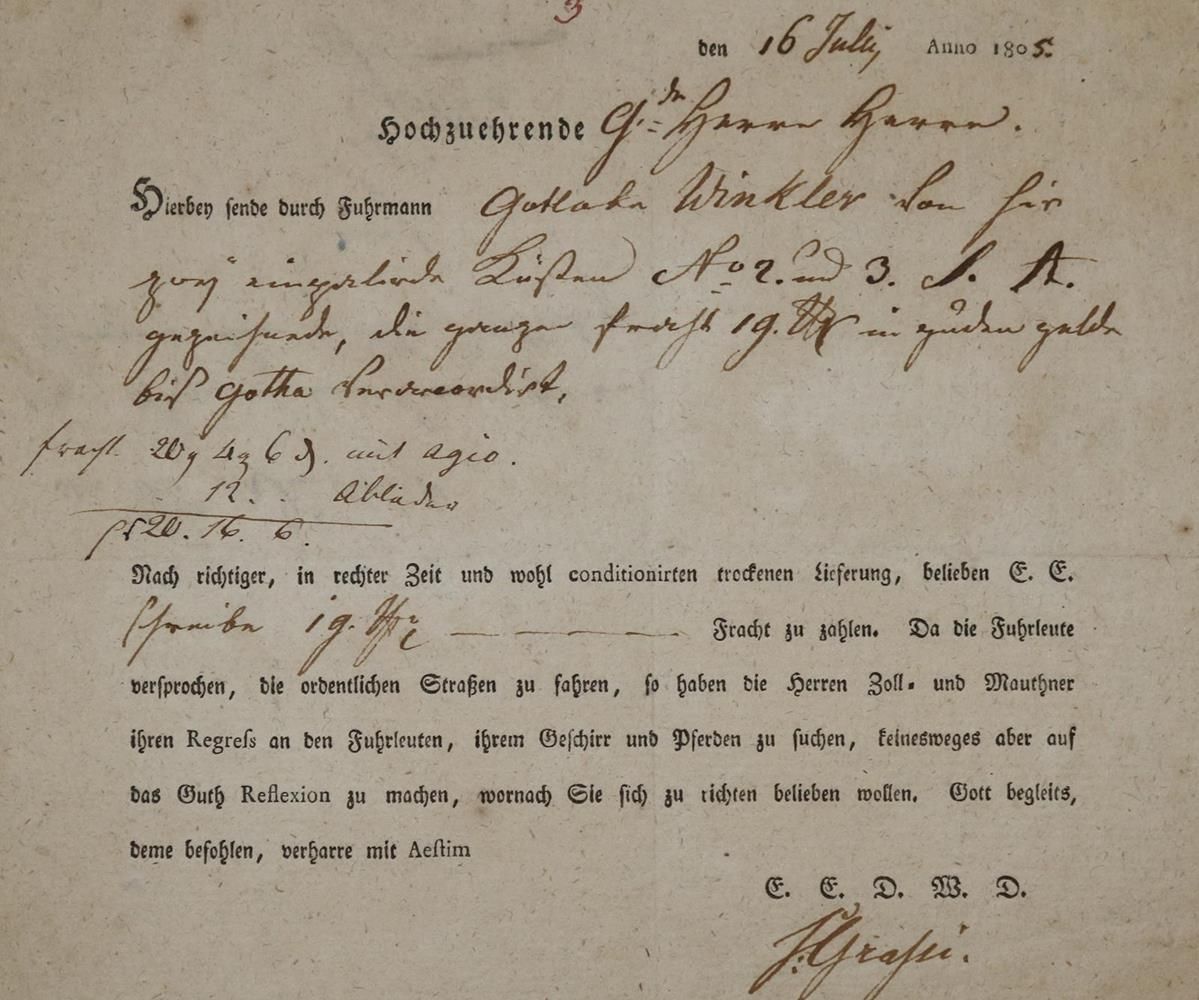 3
den 16 Julij Anno 1805.
Hochzuehrende Herre Herre.
Hierbey sende durch Fuhrmann Gotlobe Winkler von hir
zwey Küsten No 2. und 3. S. A.
gezeichnede, die ganze fracht 19. in guden gelde
bis gotha veraccordirt,
fracht 20 4 6 mit agio.
12. Abladen
20. 16. 6.
Nach richtiger, in rechter Zeit und wohl conditionirten trockenen Lieferung, belieben E. E.
schreibe 19. Fracht zu zahlen. Da die Fuhrleute
versprochen, die ordentlichen Straßen zu fahren, so haben die Herren Zoll- und Mauthner
ihren Regreſs an den Fuhrleuten, ihrem Geſchirr und Pferden zu ſuchen, keinesweges aber auf
das Guth Reflexion zu machen, wornach Sie ſich zu richten belieben wollen. Gott begleits,
deme befohlen, verharre mit Aeſtim
E. E. D. W. D.
J: Grassi.